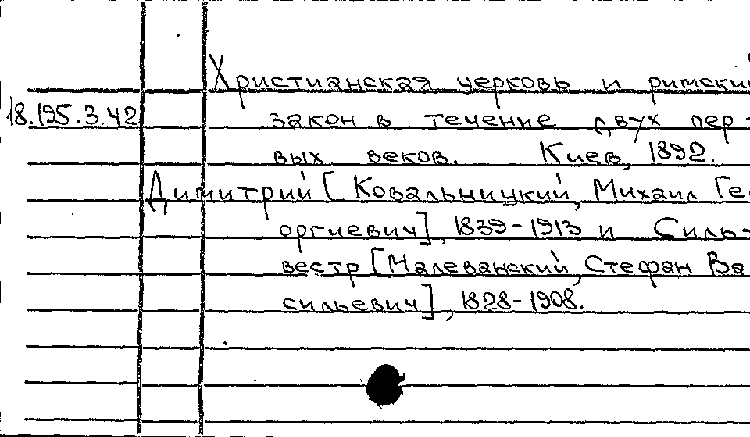 Христианская церковь и римский
18.195.3.42 закон в течение двух пер-
вых веков. Киев, 1892.
Димитрий [Ковальницкий, Михаил Ге-
оргиевич], 1839-1913 и Силь-
вестр [Малеванский, Стефан Ва-
сильевич], 1828-1908.